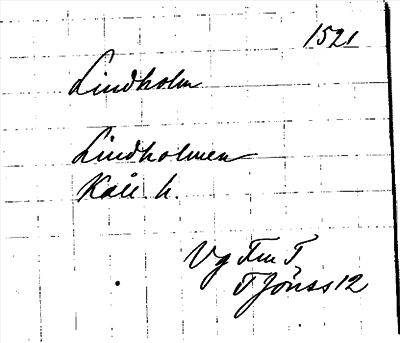 1521
Lindholm
Lindholmen
Kåll h.
Vg Fm T
T Jönss 12